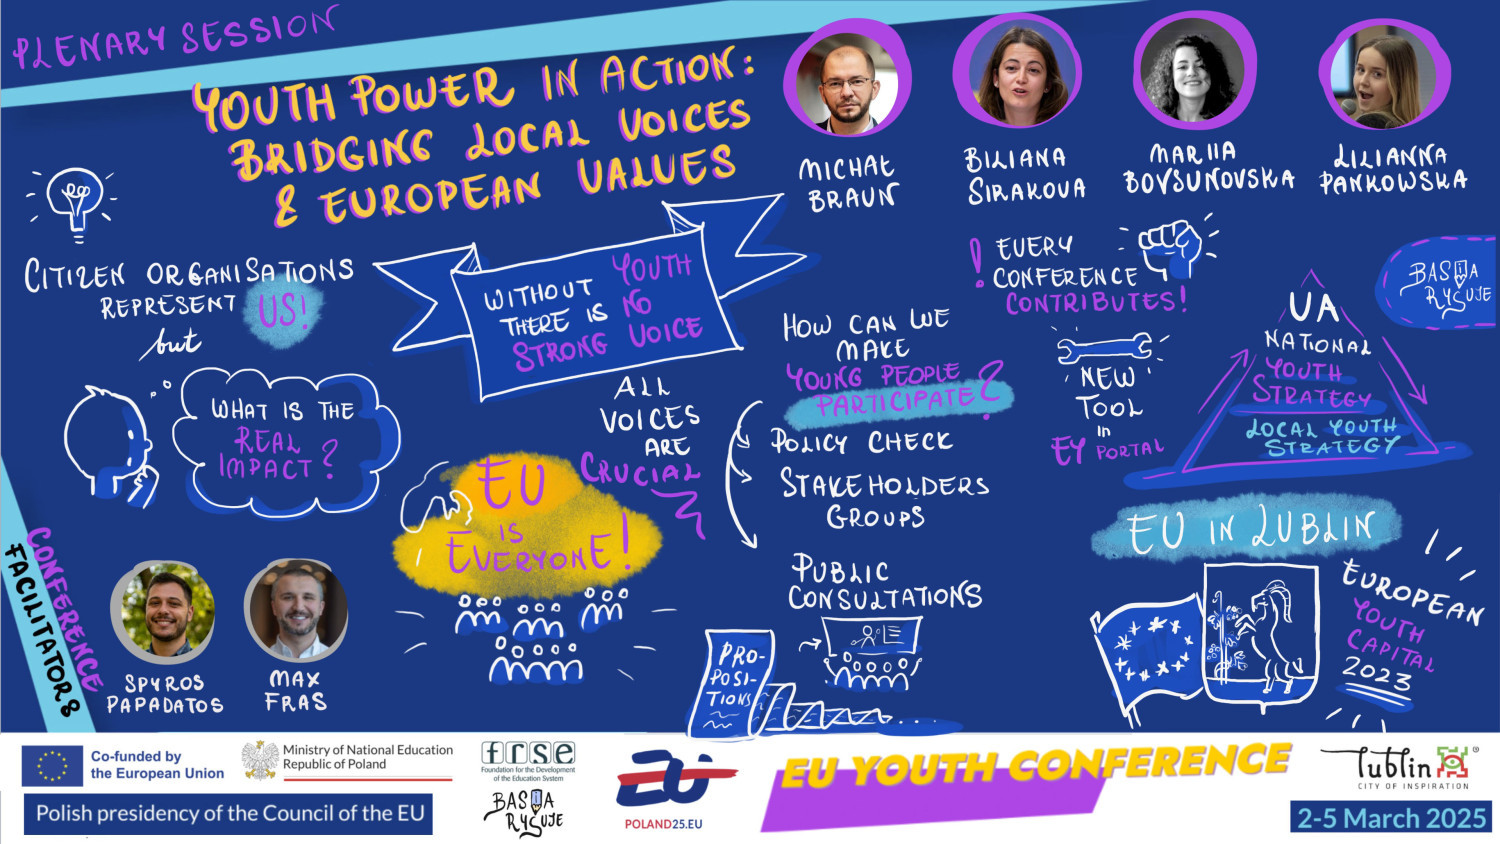 PLENARY SESSION
YOUTH POWER IN ACTION:
BRIDGING LOCAL VOICES
& EUROPEAN VALUES
MICHAŁ
BRAUN
BILIANA
SIRAKOVA
MARIIA
BOVSUNOVSKA
LILIANNA
PANKOWSKA
CITIZEN ORGANISATIONS
REPRESENT US!
but
WHAT IS THE
REAL
IMPACT?
WITHOUT YOUTH
THERE IS NO
STRONG VOICE
ALL
VOICES
ARE
CRUCIAL
EU
IS
EVERYONE!
HOW CAN WE
MAKE
YOUNG PEOPLE
PARTICIPATE?
POLICY CHECK
STAKEHOLDERS
GROUPS
PUBLIC
CONSULTATIONS
PRO-
POSI-
TIONS
! EVERY
CONFERENCE
CONTRIBUTES!
NEW
TOOL
in
EY PORTAL
UA
NATIONAL
YOUTH
STRATEGY
LOCAL YOUTH
STRATEGY
BASIA
RYSUJE
EU IN LUBLIN
EUROPEAN
YOUTH
CAPITAL
2023
CONFERENCE
FACILITATORS
SPYROS
PAPADATOS
MAX
FRAS
Co-funded by
the European Union
Ministry of National Education
Republic of Poland
Polish presidency of the Council of the EU
frse
Foundation for the Development
of the Education System
BASIA
RYSUJE
EU
POLAND25.EU
EU YOUTH CONFERENCE
Lublin
CITY OF INSPIRATION
2-5 March 2025